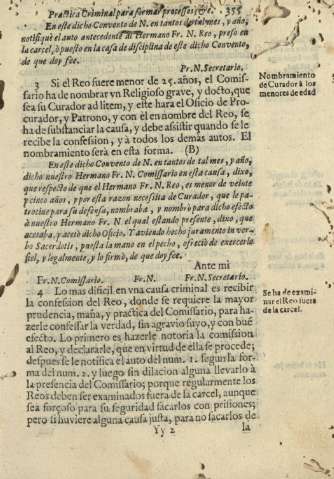 Practica Criminal para formar processos, &c. 355
En este dicho Convento de N. en tantos de tal mes, y año,
notifiquè el auto antecedente al Hermano Fr. N. Reo, preso en
la carcel, ò puesto en la casa de disciplina de este dicho Convento,
de que doy fee.
Fr. N. Secretario.
3 Si el Reo fuere menor de 25. años, el Comis-
sario ha de nombrar vn Religioso grave, y docto, que
sea su Curador ad litem, y este hara el Oficio de Pro-
curador, y Patrono, y con èl en nombre del Reo, se
ha de substanciar la causa, y debe assistir quando se le
recibe la confession, y à todos los demàs autos. El
nombramiento serà en esta forma. (B)
Nombramiento
de Curador à los
menores de edad
En este dicho Convento de N. en tantos de tal mes, y año,
dicho nuestro Hermano Fr. N. Comissario en esta causa, dixo,
que respecto de que el Hermano Fr. N. Reo, es menor de veinte
y cinco años, y por esta razon necessita de Curador, que le pa-
trocine para su defensa, nombraba, y nombrò para dicho efecto
à nuestro Hermano Fr. N. el qual estando presente, dixo, que
aceptaba, y aceptò dicho Oficio. Y aviendo hecho juramento in ver-
bo Sacerdotis, puesta la mano en el pecho, ofreciò de exercerla
fiel, y legalmente, y lo firmò, de que doy fee.
Ante mi
Fr. N. Comissario. Fr. N. Fr. N. Secretario.
4 Lo mas dificil en vna causa criminal es recibir
la confession del Reo, donde se requiere la mayor
prudencia, maña, y practica del Comissario, para ha-
zerle confessar la verdad, sin agravio suyo, y con buẽ
efecto. Lo primero es hazerle notoria la comission
al Reo, y declararle, que en virtud de ella se procede;
despues se le notifica el auto del num. 1. segun la for-
ma del num. 2. y luego sin dilacion alguna llevarlo à
la presencia del Comissario; porque regularmente los
Reos deben ser examinados fuera de la carcel, aunque
sea forçoso para su seguridad sacarlos con prisiones;
pero si huviere alguna causa justa, para no sacarlos de
Se ha de exami-
nar el Reo fuera
de la carcel.
Yy 2 la